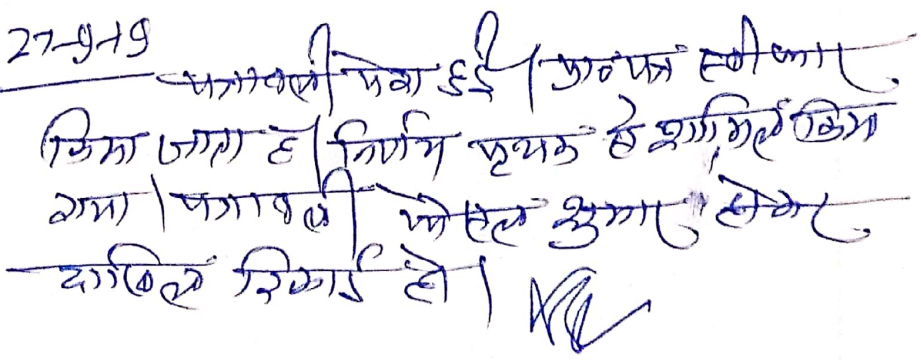 27-9-19
पत्रावली पेश हुई। प्रा० पत्र स्वीकार
किया जाता है। निर्णय पृथक से शामिल किया
गया। पत्रावली फैसल शुमार होकर
दाखिल रिकार्ड हो।